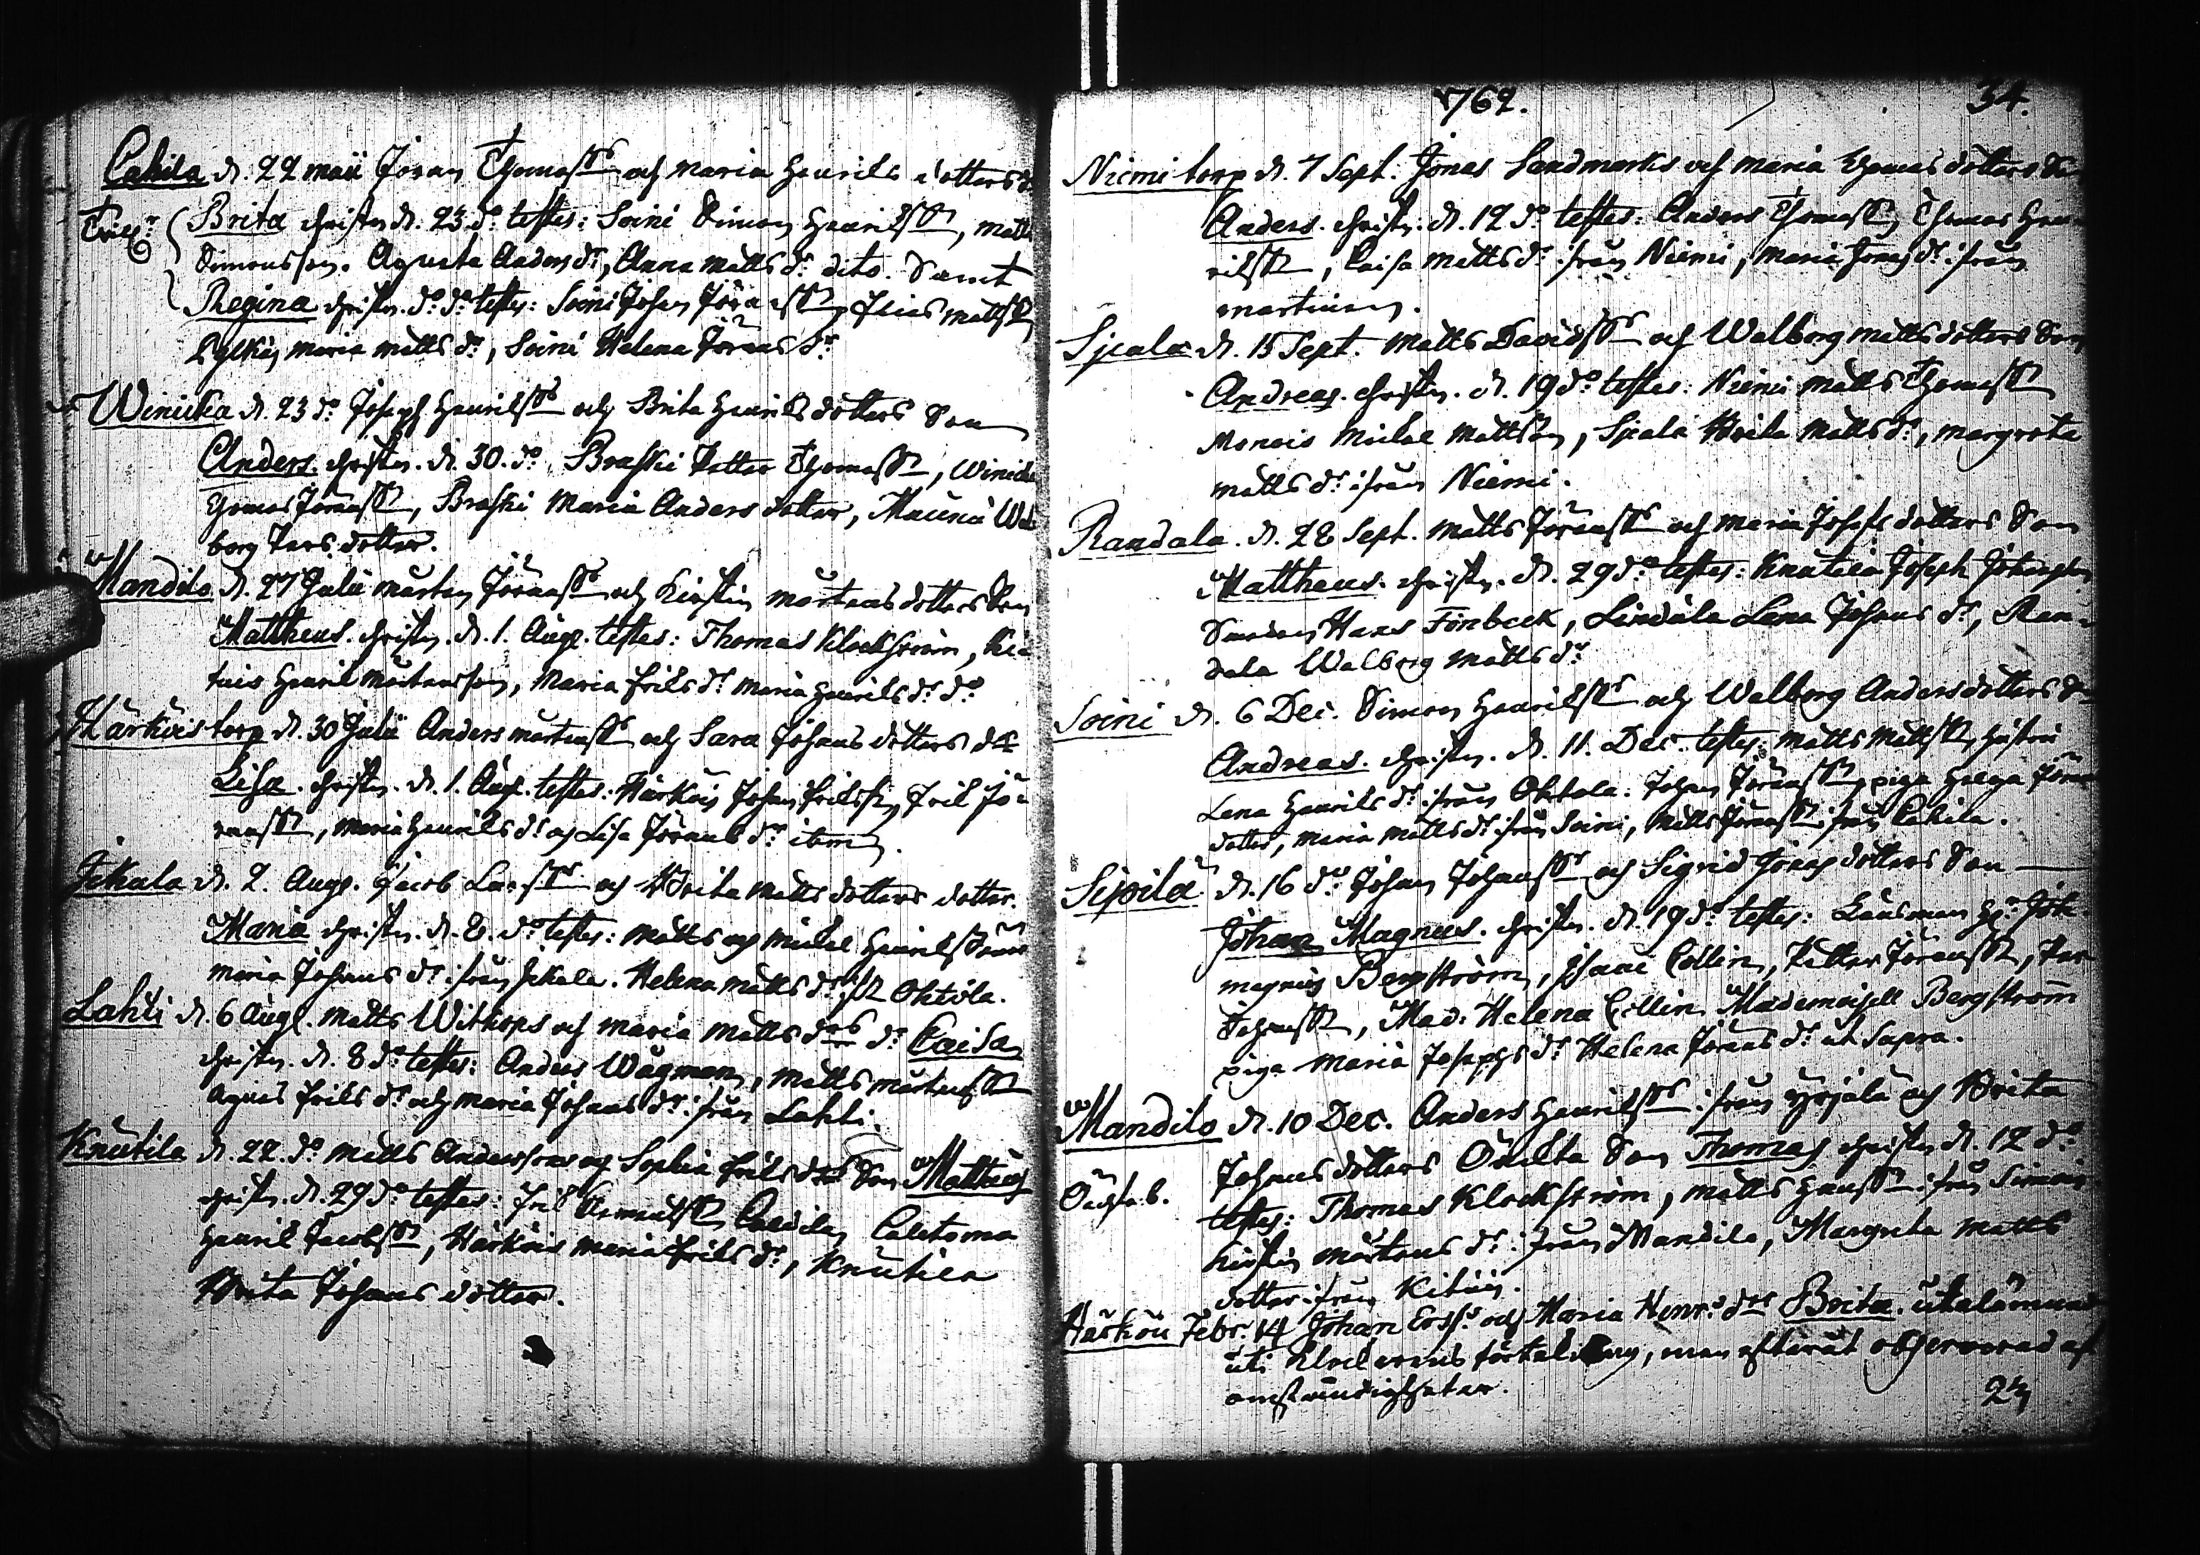 Cahila d. 22 maii Jöran Thomass: och Maria Henrics dotters d
Brita christn. d. 23 do testes: Soini Simon Henricss:, Matts
Simonsson. Agneta Anders dr, Anna Matts dr dito. Samt
Regina christn. do do testes: Soini Johan Jöranss:
Maria Matts dr, Soini Helena Jörans dr
Winicka d. 23 do Joseph Henricss: och Brita Henrics dotters Son
Anders. christn. d. 30. do Braski Petter Thomass:, Winicka
Thomas Jöranss:, Braski Maria Anders dotter, Mauria Wal
borg Pers dotter.
Mandito d. 27 Julii Mårten Jöranss: och Kirstin Mårtens dotters Son
Mattheus. christn. d. 1. Aug. testes: Thomas Klockström, Ki
tuis Henric Mårtensson, Maria Erics dr Maria Henrics dr do
Härköis torp d. 30 Julii Anders Mårtenss: och Sara Johans dotters dr
Lisa. christn. d. 1. Aug. testes: Härköis Johan Ericss:, Eric Jö
ranss:, Maria Henrics dr och Lisa Jörans dr item.
Jekala d. 2. Aug. Jacob Larss: och Brita Matts dotters dotter.
Maria christn. d. 8. do testes: Matts och Michel Henrics Söner
Maria Johans dr ifrån Jekala. Helena Matts dr Oktola.
Lahti d. 6 Aug. Matts Withops och Maria Matts drs dr Caisa
christn. d. 8 do testes: Anders Wågman, Matts Mårtenss:
Agnes Erics dr och Maria Johans dr ifrån Lahti.
Knutila d. 22. do Matts Anderssons och Sophia Erics drs Son Mattheus
christn. d. 29 do testes:
Henric Jacobss:, Härköis Maria Erics dr, Knutila
Brita Johans dotter.
1762. 34.
Niemi torp d. 7 Sept. Jonas Landmarks och Maria Thomas dotters So
Anders. christn. d. 12 do testes: Anders Thomass:, Thomas Hen
ricss:, Caisa Matts dr ifrån Niemi, Maria Jonas dr ifrån
Martinen.
Spala d. 15 Sept. Matts Davidss: och Walborg Matts dotters Son
Andreas. christn. d. 19 do testes: Niemi Matts Thomass:
Monois Michel Mattsson, Spala Brita Matts dr, Margreta
Matts dr ifrån Niemi.
Randala. d. 28 Sept. Matts Jöranss: och Maria Josephs dotters Son
Mattheus. christn. d. 29 do testes: Knutila Joseph Johansson
Hans Fönbeck, Lindula Lena Johans dr, Ran
dala Walborg Matts dr
Soini d. 6 Dec. Simon Henricss: och Walborg Anders dotters So
Andreas. christn. d. 11. Dec. testes: Matts Mattss:, hustru
Lena Henrics dr ifrån Oktola. Johan Jöranss:, piga Helga Jörans
dotter, Maria Matts dr ifrån Soini, Matts Jöranss: ifrån Cahila.
Sipilä d. 16 do Johan Johanss: och Sigrid Jöransdotters Son
Johan Magnus. christn. d. 19 do testes: Länsman Hr: Joh.
Magnus Bergström, Isaac Collin, Petter Jöranss:, Per
Johanss:, Mad: Helena Collin Mademoisell Bergström
piga Maria Josephs dr Helena Jörans dr ut Supra.
Mandito d. 10 Dec. Anders Henricss: ifrån Yrjälä och Brita
Johans dotters Oäckta Son Thomas christn d. 12 do
Oächta b.
testes: Thomas Klockström, Matts Hanss: ifrån
Kirstin Mårtens dr ifrån Mandito, Margreta Matts
dotter ifrån Kituis.
Härköis Febr. 14 Johan Erss: och Maria Henr: dr Brita. utelämnad
uti Klockarens förteckning, men efteråt observerad af
omständigheter.